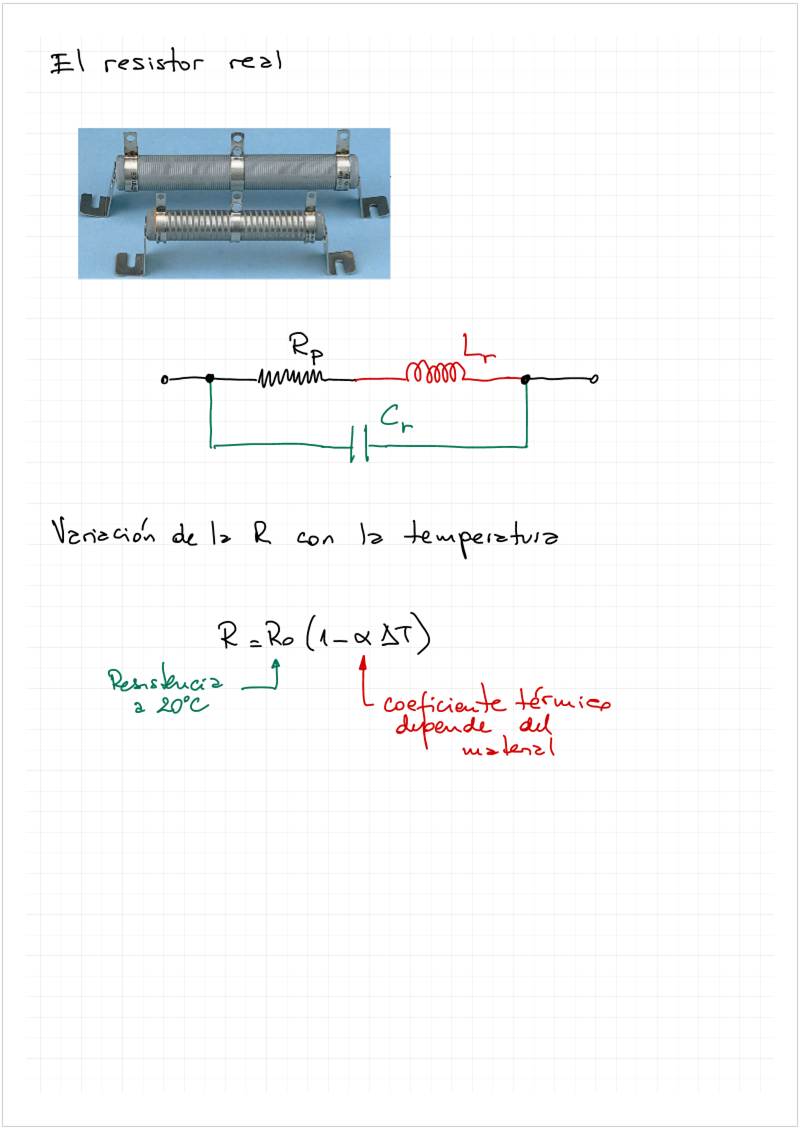 El resistor real
Rp
Lr
Cr
Variación de la R con la temperatura
R = Ro (1 - α ΔT)
Resistencia
a 20°C
coeficiente térmico
depende del
material